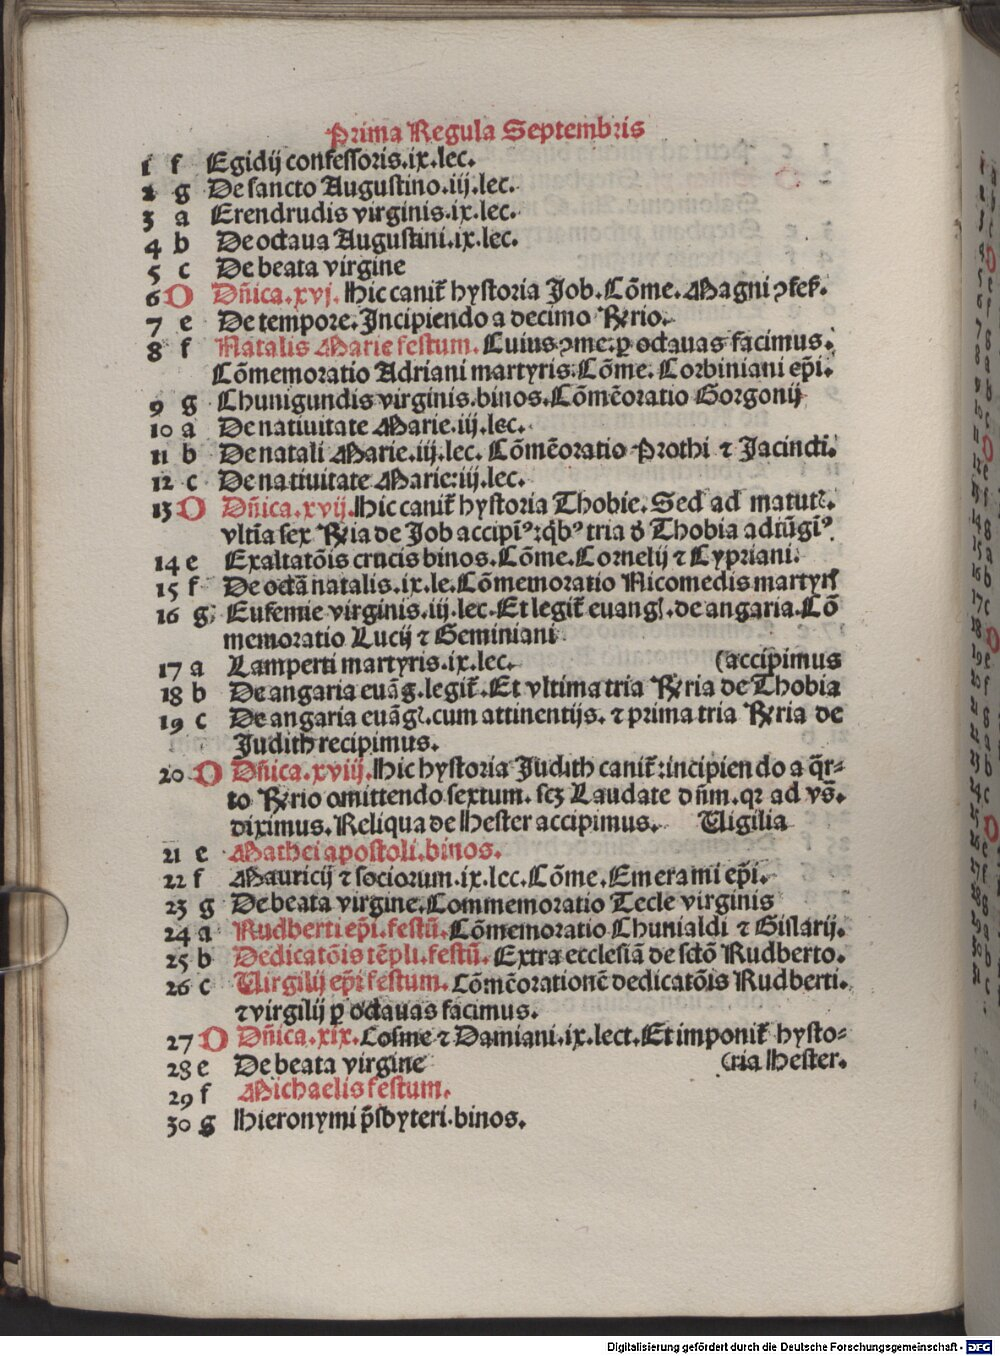 Prima Regula Septembris
1 f Egidij confessoris.ix.lec.
2 g De sancto Augustino.iij.lec.
3 a Erendrudis virginis.ix.lec.
4 b De octaua Augustini.ix.lec.
5 c De beata virgine
6 D Dñica.xvj. Hic canit᷑ hystoria Job. Cõme. Magni ꝯfeſ.
7 e De tempore. Incipiendo a decimo Rrio.
8 f Natalis Marie festum. Cuius ꝯme. ꝑ octauas facimus.
Cõmemoratio Adriani martyris. Cõme. Corbiniani ep̃i.
9 g Chunigundis virginis. binos. Cõmẽoratio Gorgonij
10 a De natiuitate Marie.iij.lec.
11 b De natali Marie.iij.lec. Cõmẽoratio Prothi ⁊ Jacincti.
12 c De natiuitate Marie:iij.lec.
13 D Dñica.xvij. Hic canit᷑ hystoria Thobie. Sed ad matut᷑.
vltĩa sex Rria de Job accipiꝰ:qbꝰ tria ð Thobia adiũgiꝰ.
14 e Exaltatõis crucis binos. Cõme. Cornelij ⁊ Cypriani.
15 f De octã natalis.ix.le. Cõmemoratio Nicomedis martyrꝭ
16 g Eufemie virginis.iij.lec. Et legit᷑ euangl. de angaria. Cõ
memoratio Lucij ⁊ Geminiani
17 a Lamperti martyris.ix.lec. (accipimus
18 b De angaria euãg. legit᷑. Et vltima tria Rria de Thobia
19 c De angaria euãgl. cum attinentijs. ⁊ prima tria Rria de
Judith recipimus.
20 D Dñica.xviij. Hic hystoria Judith canit᷑:incipiendo a q̃r-
to Rrio omittendo sextum. scꝫ Laudate dñm. qꝛ ad vs̃.
diximus. Reliqua de Hester accipimus. Vigilia
21 e Mathei apostoli. binos.
22 f Mauricij ⁊ sociorum.ix.lec. Cõme. Emerami ep̃i.
23 g De beata virgine. Commemoratio Tecle virginis
24 a Rudberti ep̃i. festũ. Cõmemoratio Chunialdi ⁊ Gislarij.
25 b Dedicatõis tẽpli. festũ. Extra ecclesiã de sctõ Rudberto.
26 c Virgilij ep̃i festum. Cõmẽorationẽ dedicatõis Rudberti.
⁊ virgilij ꝑ octauas facimus.
27 D Dñica.xix. Cosme ⁊ Damiani.ix.lect. Et imponit᷑ hysto-
28 e De beata virgine (ria Hester.
29 f Michaelis festum.
30 g Hieronymi p̃sbyteri. binos.
Digitalisierung gefördert durch die Deutsche Forschungsgemeinschaft - DFG